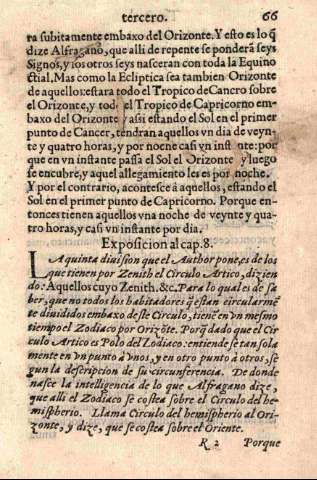 tercero. 66
ra subitamente embaxo del Orizonte. Y esto es lo q̃
dize Alfragano, que alli de repente se ponderã seys
Signos, y los otros seys nasceran con toda la Equino
ctial. Mas como la Ecliptica sea tambien Orizonte
de aquellos: estara todo el Tropico de Cancro sobre
el Orizonte, y tod el Tropico de Capricorno em-
baxo del Orizonte y assi estando el Sol en el primer
punto de Cancer, tendran aquellos vn dia de veyn-
te y quatro horas, y por noche casi vn inst nte: por
que en vn instante passa el Sol el Orizonte y luego
se encubre, y aquel allegamiento les es por noche.
Y por el contrario, acontesce à aquellos, estando el
Sol en el primer punto de Capricorno. Porque en-
tonces tienen aquellos vna noche de veynte y qua-
tro horas, y casi vn instante por dia.
Exposicion al cap. 8.
LA quinta diuision que el Author pone, es de los
que tienen por Zenith el Circulo Artico, diziẽ
do: Aquellos cuyo Zenith. &c. Para lo qual es de sa
ber, que no todos los habitadores q̃ estan circularmẽ
te diuididos embaxo deste Circulo, tienẽ vn mesmo
tiempo el Zodiaco por Orizõte. Porq̃ dado que el Cir
culo Artico es Polo del Zodiaco: entiende se tan sola
mente en vn punto à vnos, y en otro punto à otros, se
gun la descripcion de su circunferencia. De donde
nasce la intelligencia de lo que Alfragano dize,
que alli el Zodiaco se costea sobre el Circulo del he-
mispherio. Llama Circulo del hemispherio al Ori-
zonte, y dize, que se costea sobre el Oriente.
R 2 Porque